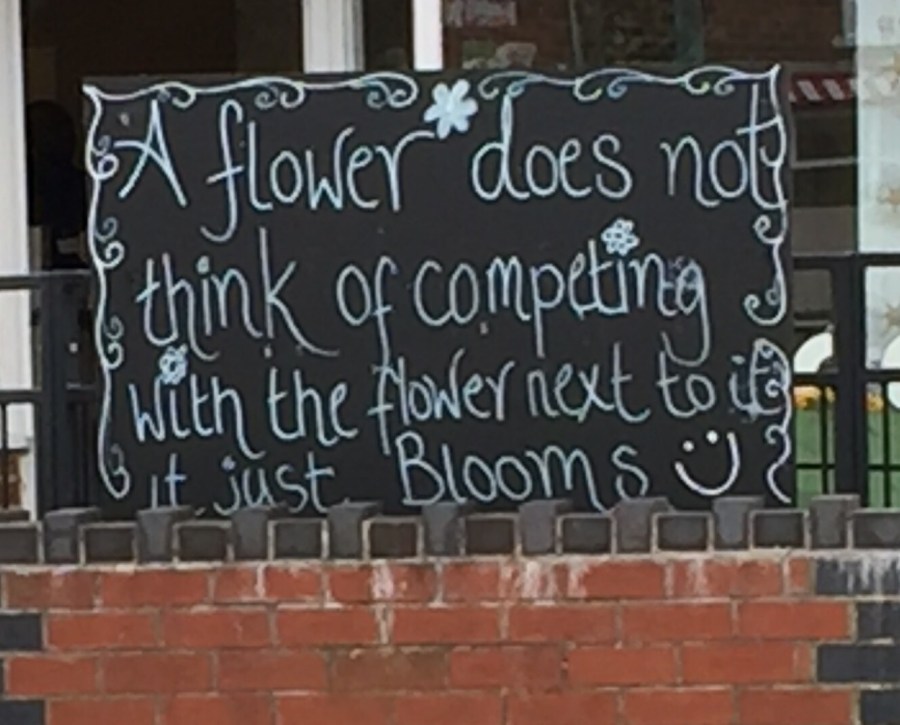 A flower does not
think of competing
with the flower next to it
it just Blooms